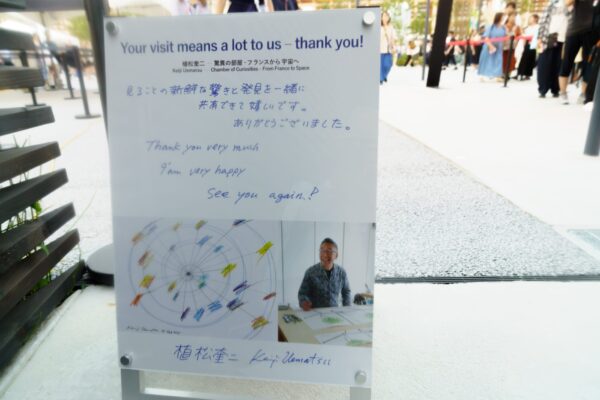 Your visit means a lot to us – thank you!
植松奎二 驚異の部屋 - フランスから 宇宙へ
Keiji Uematsu Chamber of Curiosities - From France to Space
見ることの新鮮な驚きと発見を一緒に
共有できて嬉しいです。
ありがとうございました。
Thank you very much
I'am very happy
See you again!
植松奎二 Keiji Uematsu